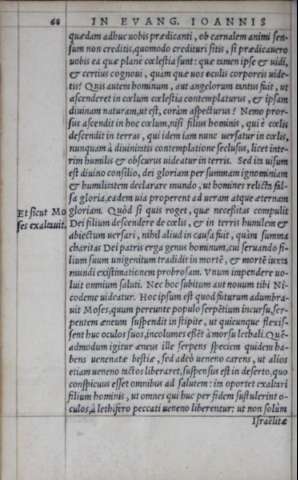 66 IN EVANG. IOANNIS
quædam adhuc uobis prædicanti, ob carnalem animi sen-
sum non creditis, quomodo credituri sitis, si prædicauero
uobis ea quæ planè cœlestia sunt: quæ tamen ipse & uidi,
& certius cognoui, quàm quæ uos oculis corporeis uide-
tis? Quis autem hominum, aut angelorum tantus fuit, ut
ascenderet in cœlum cœlestia contemplaturus, & ipsam
diuinam naturam, ut est, coràm aspecturus? Nemo pror-
sus ascendit in hoc cœlum, nisi filius hominis, qui è cœlis
descendit in terras, qui idem iam nunc uersatur in cœlis,
nunquam à diuinitatis contemplatione seclusus, licet inte-
rim humilis & obscurus uideatur in terris. Sed ita uisum
est diuino consilio, dei gloriam per summam ignominiam
& humilitatem declarare mundo, ut homines relicta fal-
sa gloria, eadem uia properent ad ueram atque æternam
Et sicut Mo
ses exaltauit.
gloriam. Quòd si quis roget, quæ necessitas compulit
Dei filium descendere de cœlis, & in terris humilem &
abiectum uersari, nihil aliud in causa fuit, quàm summa
charitas Dei patris erga genus hominum, cui seruando fi-
lium suum unigenitum tradidit in mortē, & mortē iuxta
mundi existimationem probrosam. Vnum impendere uo-
luit omnium saluti. Nec hoc subitum aut nouum tibi Ni-
codeme uideatur. Hoc ipsum est quod futurum adumbra-
uit Moses, quum pereunte populo serpētium incursu, ser-
pentem æneum suspendit in stipite, ut quicunque flexis-
sent huc oculos suos, incolumes essēt à morsu lethali. Quē-
admodum igitur æneus ille serpens speciem quidem ha-
bens uenenatæ bestiæ, sed adeò ueneno carens, ut alios
etiam ueneno tactos liberaret, suspensus est in deserto, quo
conspicuus esset omnibus ad salutem: ita oportet exaltari
filium hominis, ut omnes qui huc per fidem sustulerint o-
culos, à lethifero peccati ueneno liberentur: ut non solùm
Israëlitæ